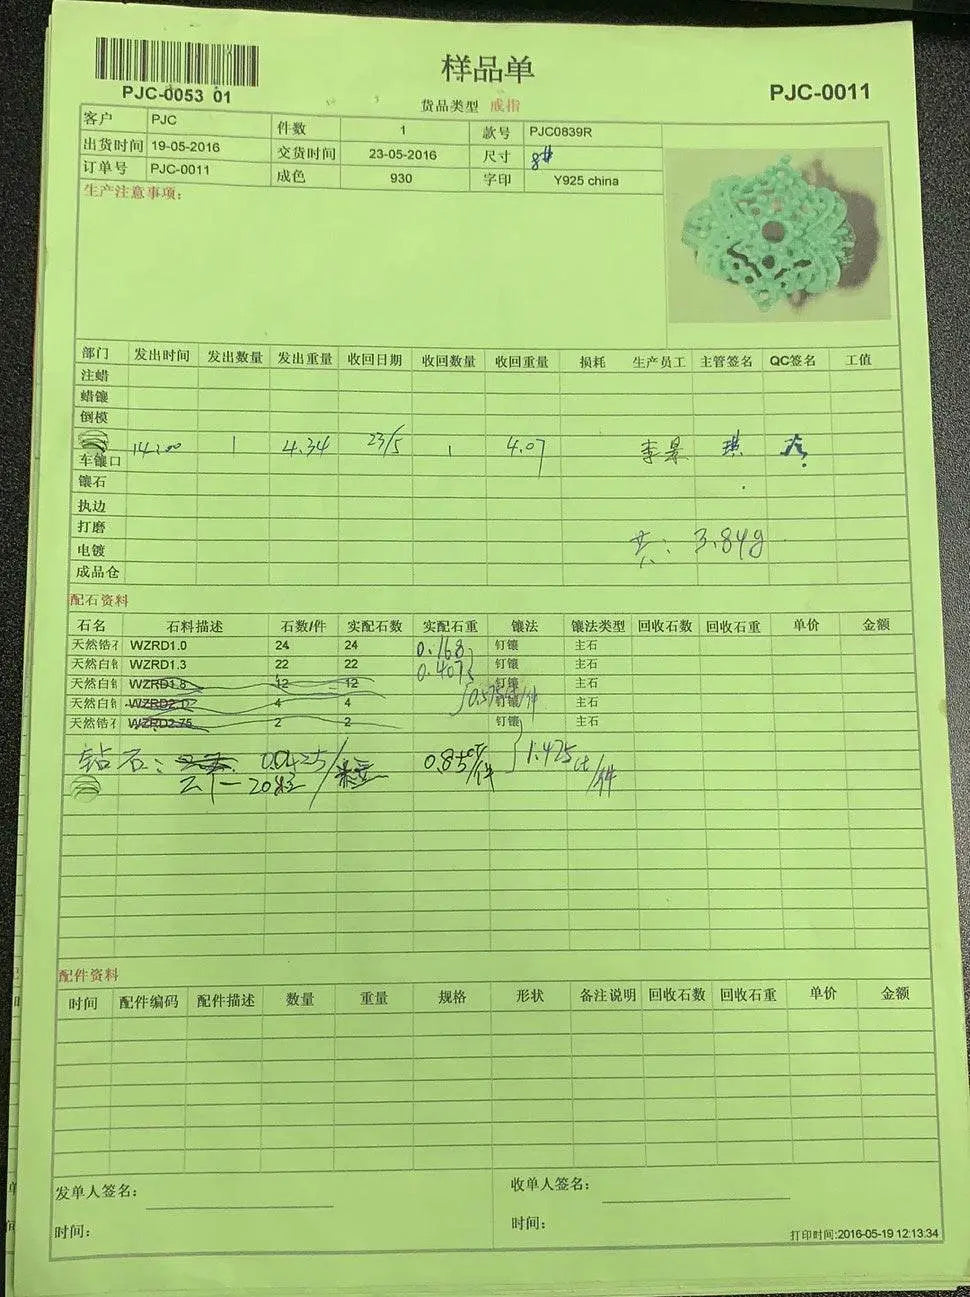 样品单
PJC-0053 01
货品类型 戒指
PJC-0011
客户 PJC 件数 1 款号 PJC0839R
出货时间 19-05-2016 交货时间 23-05-2016 尺寸 8#
订单号 PJC-0011 成色 930 字印 Y925 china
生产注意事项:
部门 发出时间 发出数量 发出重量 收回日期 收回数量 收回重量 损耗 生产员工 主管签名 QC签名 工值
注蜡
蜡镶
倒模
14:00 1 4.34 23/5 1 4.07 李景
车镶口
镶石
执边
打磨
共: 3.84g
电镀
成品仓
配石资料
石名 石料描述 石数/件 实配石数 实配石重 镶法 镶法类型 回收石数 回收石重 单价 金额
天然锆石 WZRD1.0 24 24 0.168 钉镶 主石
天然白 WZRD1.3 22 22 0.407 钉镶 主石
天然白 WZRD1.8 12 12 钉镶 主石
天然白 WZRD2.0 4 4 钉镶 主石
天然锆石 WZRD2.75 2 2 钉镶 主石
钻石: 0.0425/粒 0.85ct/件 1.425ct/件
配件资料
时间 配件编码 配件描述 数量 重量 规格 形状 备注说明 回收石数 回收石重 单价 金额
发单人签名: 收单人签名:
时间: 时间:
打印时间:2016-05-19 12:13:34